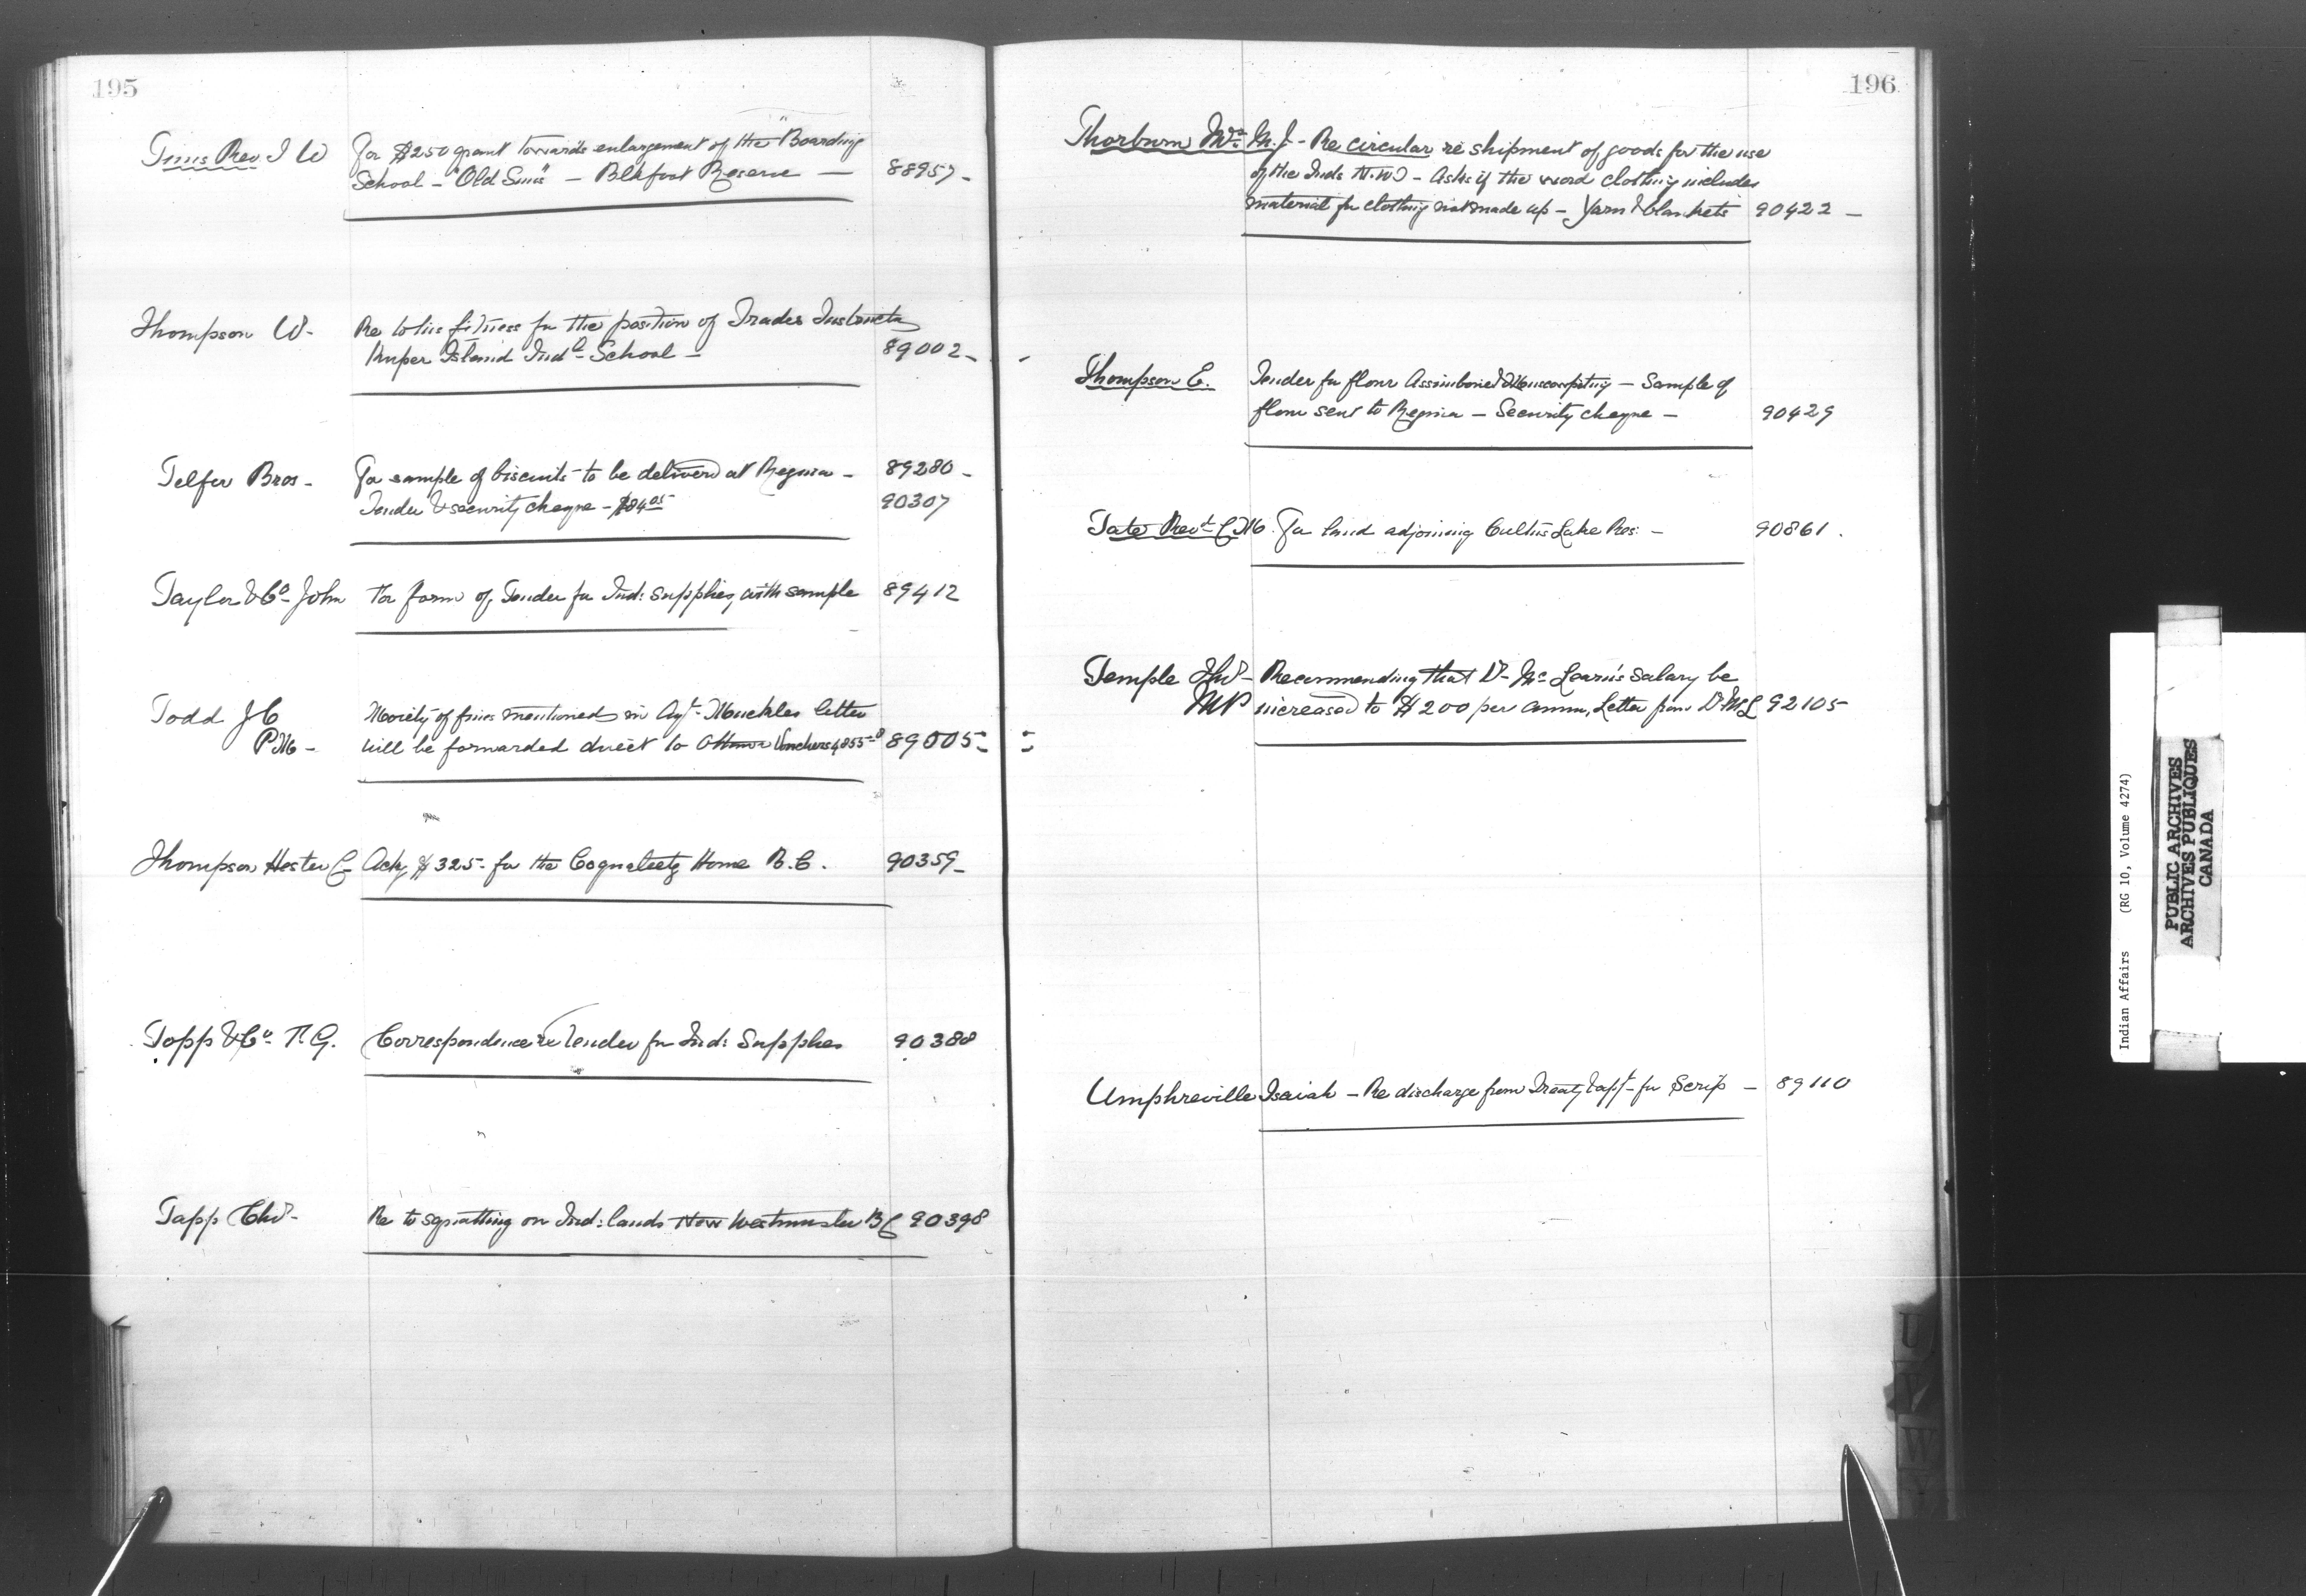 195
Tims Rev J W For $250 grant towards enlargement of the "Boarding
School - "Old Sun's" - Blkfoot Reserve - 88957 -
Thompson W. Re to his fitness for the position of Trades Instructor
Kuper Island Indl School - 89002 -
Telfer Bros - For sample of biscuits to be delivered at Regina - 89280 -
Tender & security cheque - $84.05 90307
Taylor & Co John For form of Tender for Ind: Supplies, with sample 89412
Todd J C Moiety of fines mentioned in Agt. Muckles letter
P.M - will be forwarded direct to Ottawa Vouchers 4855 89005
Thompson Hester C Ack $325 - for the Coqualeetz Home B.C. 90359 -
Topp & Co. T. G. Correspondence re Tender for Ind: Supplies 90388
Tapp Chs - Re to squatting on Ind: lands New Westminster BC 90398
196
Thorburn Wm M. J - Re circular re shipment of goods for the use
of the Inds N.W.T - Asks if the word clothing includes
material for clothing not made up - Yarn & blankets 90422 -
Thompson E. Tender for flour Assiniboine & Muscowpetung - Sample of
flour sent to Regina - Security cheque - 90429
Tate Revd C M. For land adjoining Cultus Lake Res: - 90861 .
Temple Thos - Recommending that Dr Mc Learn's salary be
MP increased to $200 per annum, Letter from Dr McL 92105
Umphreville Isaiah - Re discharge from Treaty & appn for Scrip - 89110
U
V
W
Indian Affairs (RG 10, Volume 4274)
PUBLIC ARCHIVES
ARCHIVES PUBLIQUES
CANADA